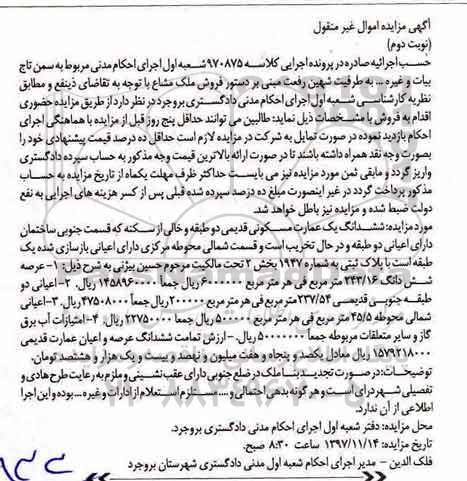 آگهی مزایده اموال غیر منقول
(نوبت دوم)
حسب اجرائیه صادره در پرونده اجرایی کلاسه ۹۷۰۸۷۵ شعبه اول اجرای احکام مدنی مربوط به سمن تاج
بیات و غیره ... به طرفیت شهین رفعت مبنی بر دستور فروش ملک مشاع با توجه به تقاضای ذینفع و مطابق
نظریه کارشناسی شعبه اول اجرای احکام مدنی دادگستری بروجرد در نظر دارد از طریق مزایده حضوری
اقدام به فروش با مشخصات ذیل نماید: طالبین می توانند حداقل پنج روز قبل از مزایده با هماهنگی اجرای
احکام بازدید نموده در صورت تمایل به شرکت در مزایده لازم است حداقل ده درصد قیمت پیشنهادی خود را
بصورت وجه نقد همراه داشته باشند تا در صورت ارائه بالاترین قیمت وجه مذکور به حساب سپرده دادگستری
واریز گردد و مابقی ثمن مورد مزایده نیز می بایست حداکثر ظرف مهلت یکماه از تاریخ مزایده به حساب
مذکور پرداخت گردد در غیر اینصورت مبلغ ده درصد سپرده شده قبلی پس از کسر هزینه های اجرایی به نفع
دولت ضبط شده و مزایده نیز باطل خواهد شد.
مورد مزایده: ششدانگ یک عمارت مسکونی قدیمی دو طبقه و خالی از سکنه که قسمت جنوبی ساختمان
دارای اعیانی دو طبقه و در حال تخریب است و قسمت شمالی محوطه مرکزی دارای اعیانی بازسازی شده یک
طبقه است با پلاک ثبتی به شماره ۱۹۴۷ بخش ۲ تحت مالکیت مرحوم حسین بیژنی به شرح ذیل: ۱- عرصه
شش دانگ ۲۴۳/۱۶ متر مربع فی هر متر مربع ۶۰۰۰۰۰۰ ریال جمعاً ۱۴۵۸۹۶۰۰۰۰ ریال. ۲- اعیانی دو
طبقه جنوبی قدیمی ۲۳۷/۵۴ متر مربع فی هر متر مربع ۲۰۰۰۰۰ ریال جمعاً ۴۷۵۰۸۰۰۰ ریال. ۳- اعیانی
شمالی محوطه ۴۵/۵ متر مربع فی هر متر مربع ۵۰۰۰۰۰ ریال جمعاً ۲۲۷۵۰۰۰۰ ریال. ۴- امتیازات آب برق
گاز و سایر متعلقات مربوطه جمعاً ۵۰۰۰۰۰۰۰ ریال. - ارزش تمامت ششدانگ عرصه و اعیان عمارت قدیمی
۱۵۷۹۲۱۸۰۰۰ ریال معادل یکصد و پنجاه و هفت میلیون و نهصد و بیست و یک هزار و هشتصد تومان.
توضیحات: در صورت تجدید بنا ملک در ضلع جنوبی دارای عقب نشینی و ملزم به رعایت طرح هادی و
تفصیلی شهر درای است و هر گونه بدهی احتمالی و .... مستلزم استعلام از ادارات و غیره ... بوده و این اجرا
اطلاعی از آن ندارد.
محل مزایده: دفتر شعبه اول اجرای احکام مدنی دادگستری بروجرد.
تاریخ مزایده: ۱۳۹۷/۱۱/۱۴ ساعت ۸:۳۰ صبح.
فلک الدین - مدیر اجرای احکام شعبه اول مدنی دادگستری شهرستان بروجرد